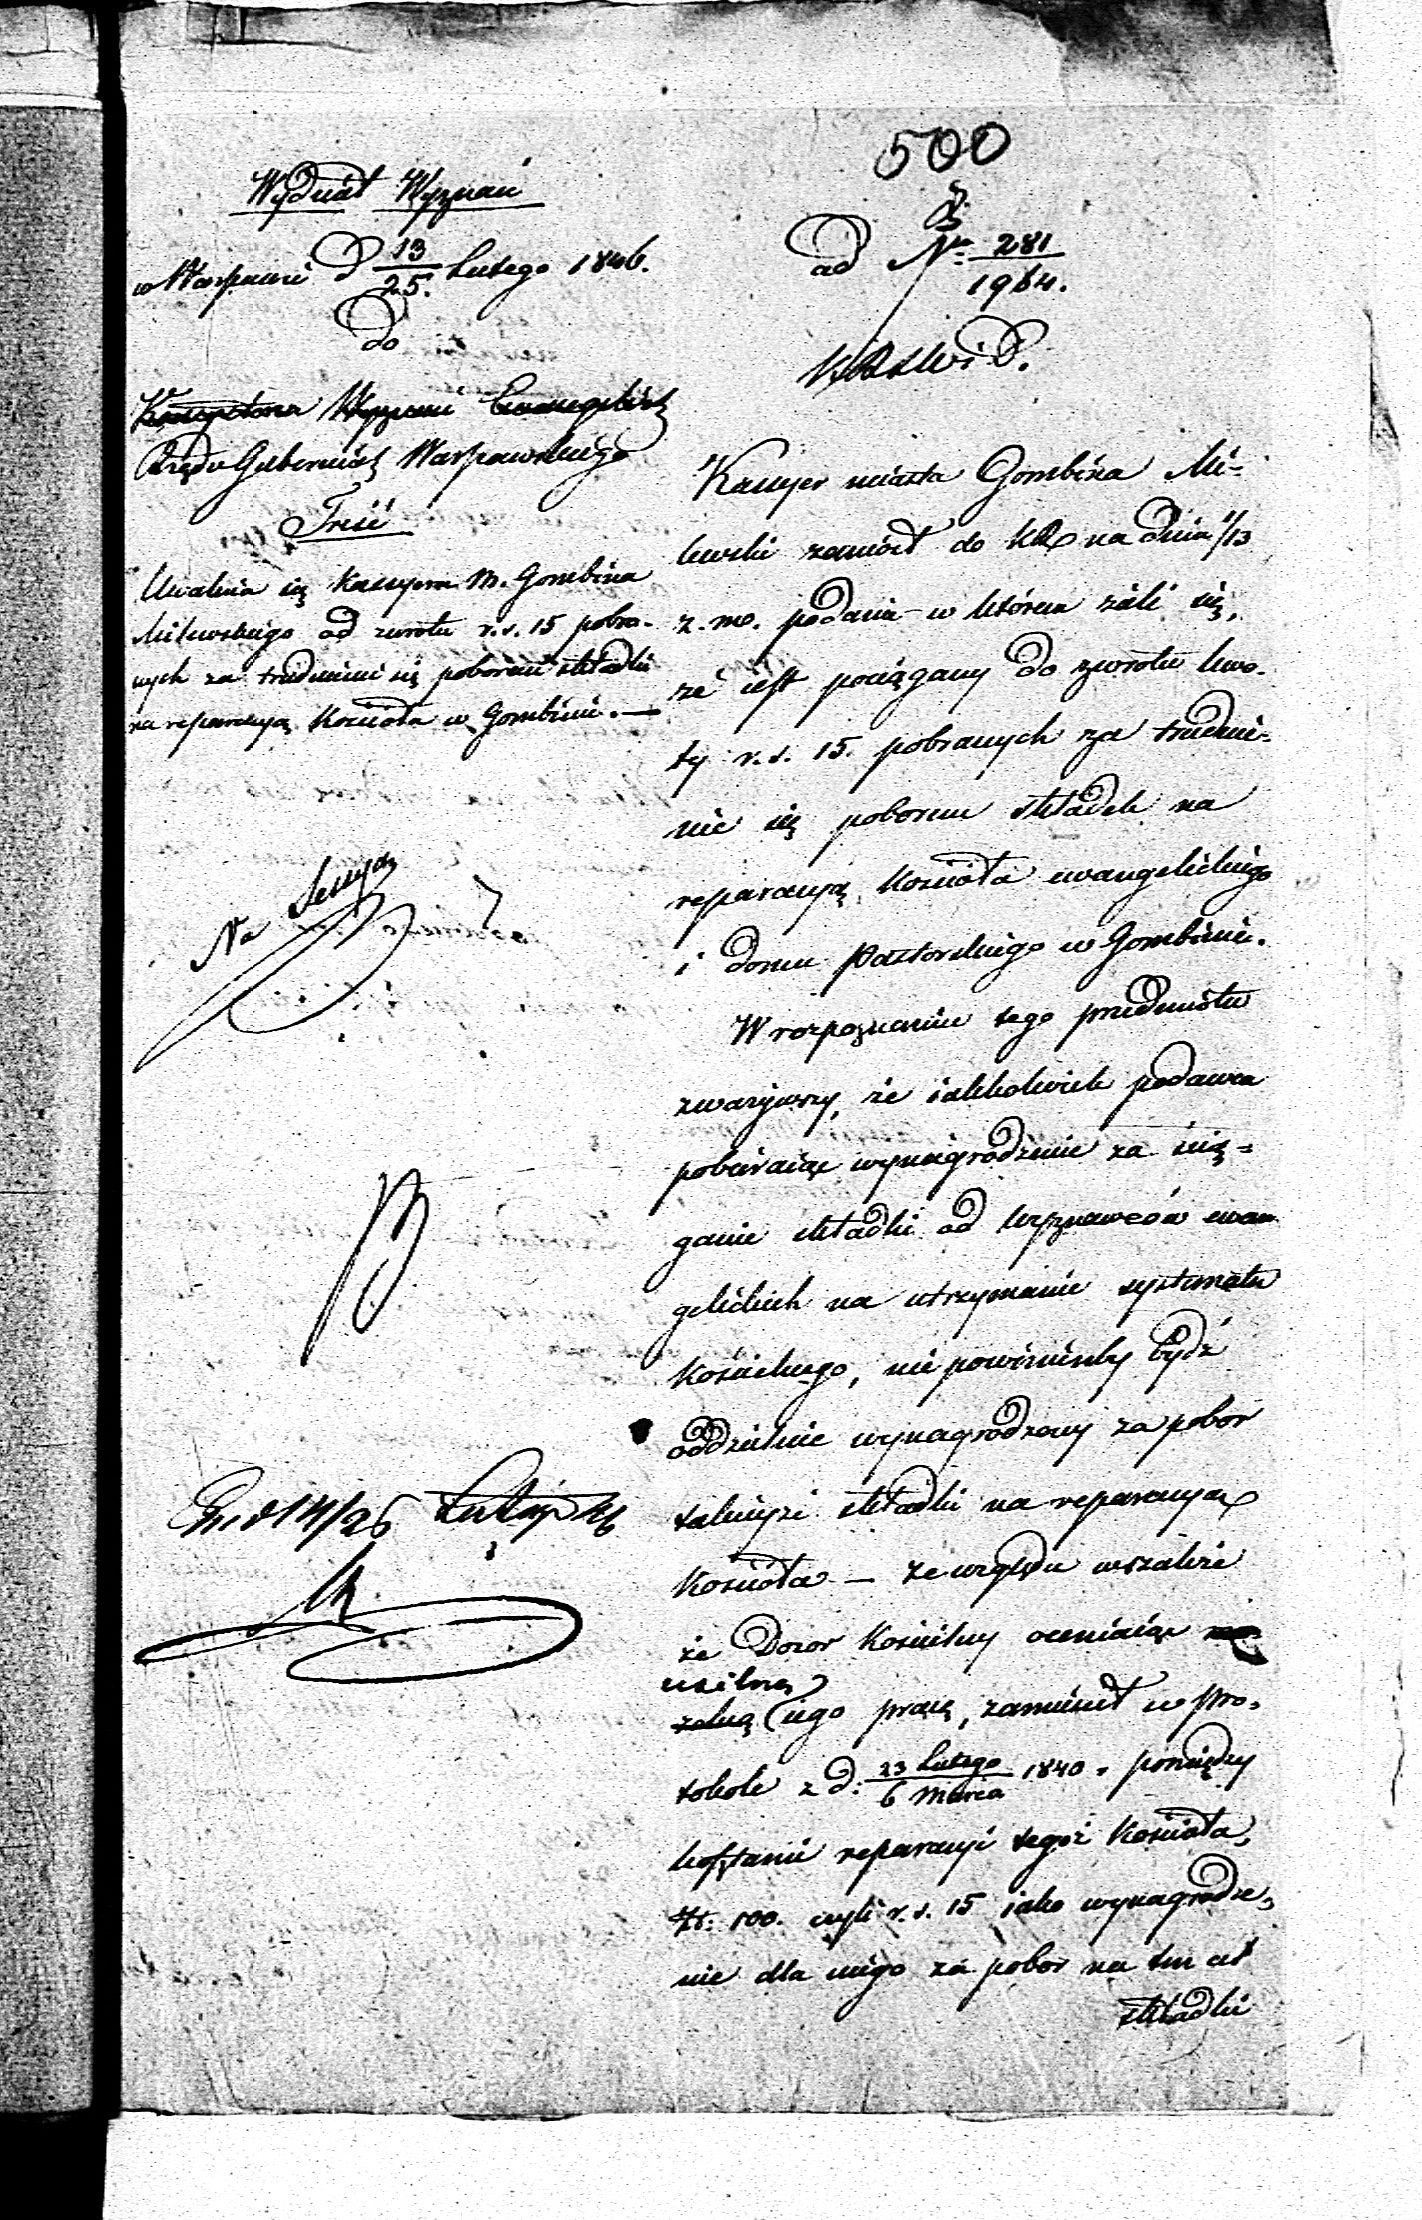 500
Wydział Wyznań
w Warszawie d 13/25. Lutego 1846.
Do
Konsystorza Wyznań Ewangelick
Rządu Gubernial Warszawskiego
Treść
Uwalnia się Kassyera M. Gombina
Milewskiego od zwrotu r.s. 15 pobra-
nych za trudnienie się poborem składki
na reparacyą Kościoła w Gombinie.—
Na Sessyą
14/26 Lutego 46
ad Nr 281/1964.
Kassyer miasta Gombina Mi-
lewski zaniósł do KR na dniu 1/13
z. m. podanie w którem żali się,
że iest pociągany do zwrotu kwo-
ty r.s. 15. pobranych za trudnie-
nie się poborem składek na
reparacyą Kościoła ewangelickiego
i domu Pastorskiego w Gombinie.
W rozpoznaniu tego przedmiotu
zważywszy, że iakkolwiek podawca
pobieraiąc wynagrodzenie za ścią-
ganie składki od wyznawców ewan
gelickich na utrzymanie systematu
Kościelnego, nie powinienby bydź
oddzielnie wynagrodzony za pobor
takieyże składki na reparacyą
Kościoła — ze względu wszakże
że Dozor Kościelny oceniaiąc
usilną
iego pracę, zamieścił w pro-
tokole z d. 23 Lutego/6 Marca 1840. pomiędzy
kosztami reparacyi tegoż Kościoła,
Zł. 100. czyli r.s. 15 iako wynagrodze-
nie dla niego za pobor na ten cel
składki